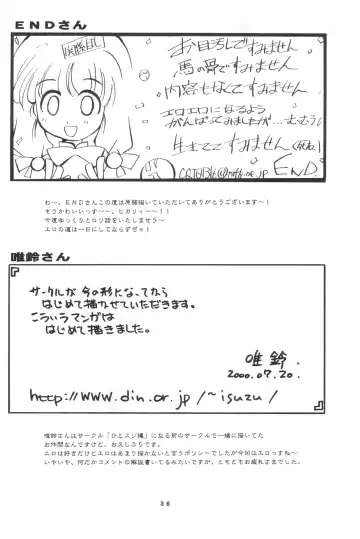 ENDさん
お目汚しですみません
馬の骨ですみません
内容もなくてすみません
エロエロになるよう
がんばってみましたが…むむう!
生きててすみません(死ね)
END.
わ〜、ENDさんこの度は原稿描いていただいてありがとうございます〜!
もうかわいいっす〜、ヒカリィ〜!!
今度ゆっくりとロリ話をいたしませう〜
エロの道は一日にしてならずぢゃ!
唯鈴さん
サークルが今の形になってから
はじめて描かせていただきます。
こういうマンガは
はじめて描きました。
唯鈴.
2000.07.20.
http://www.din.or.jp/~isuzu/
唯鈴さんはサークル「ひとスジ縄」になる前のサークルで一緒に描いてた
お仲間なんですけど、お久しぶりです。
エロは好きだけどエロはあまり描かないと言うポリシ〜でしたが今回はエロっすね〜
いやいや、何だかコメントの解説書いてるみたいですが、ともどもお疲れさまでした。
36